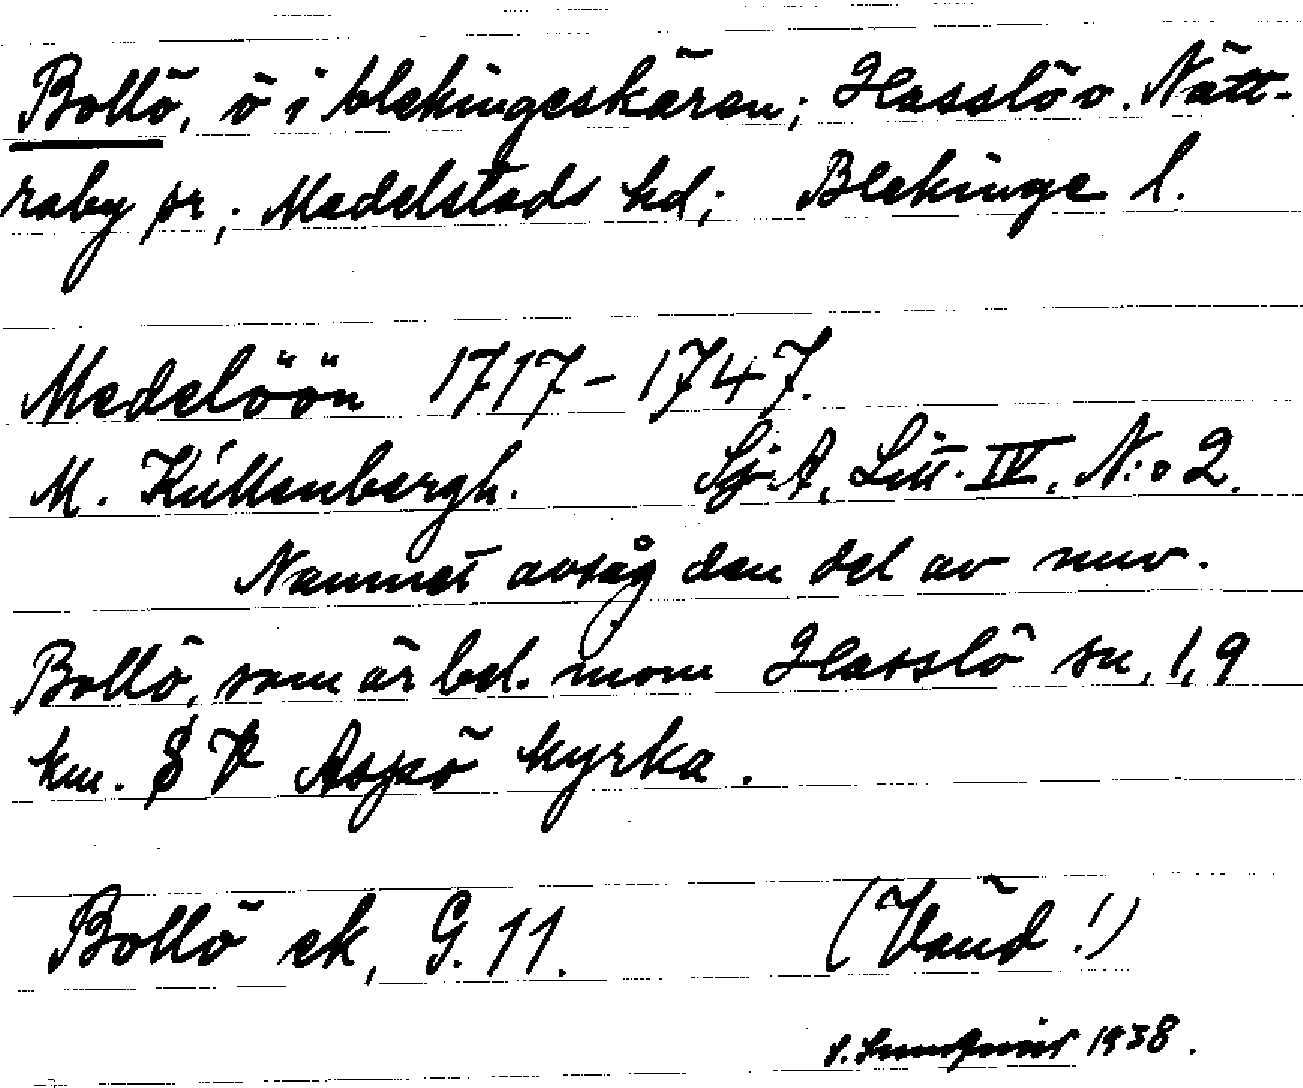 Bollö, ö i blekingeskären; Hasslö o. Nätt-
raby sr; Medelstads hd; Blekinge l.
Medelöön 1717-1747.
M. Kúllenbergh. Sj.A. Litt. IV. N:o 2.
Namnet avsåg den del av nuv.
Bollö, som är bel. inom Hasslö sn, 1,9
km. SV Aspö kyrka.
Bollö ek, G. 11. (Vänd!)
1938.